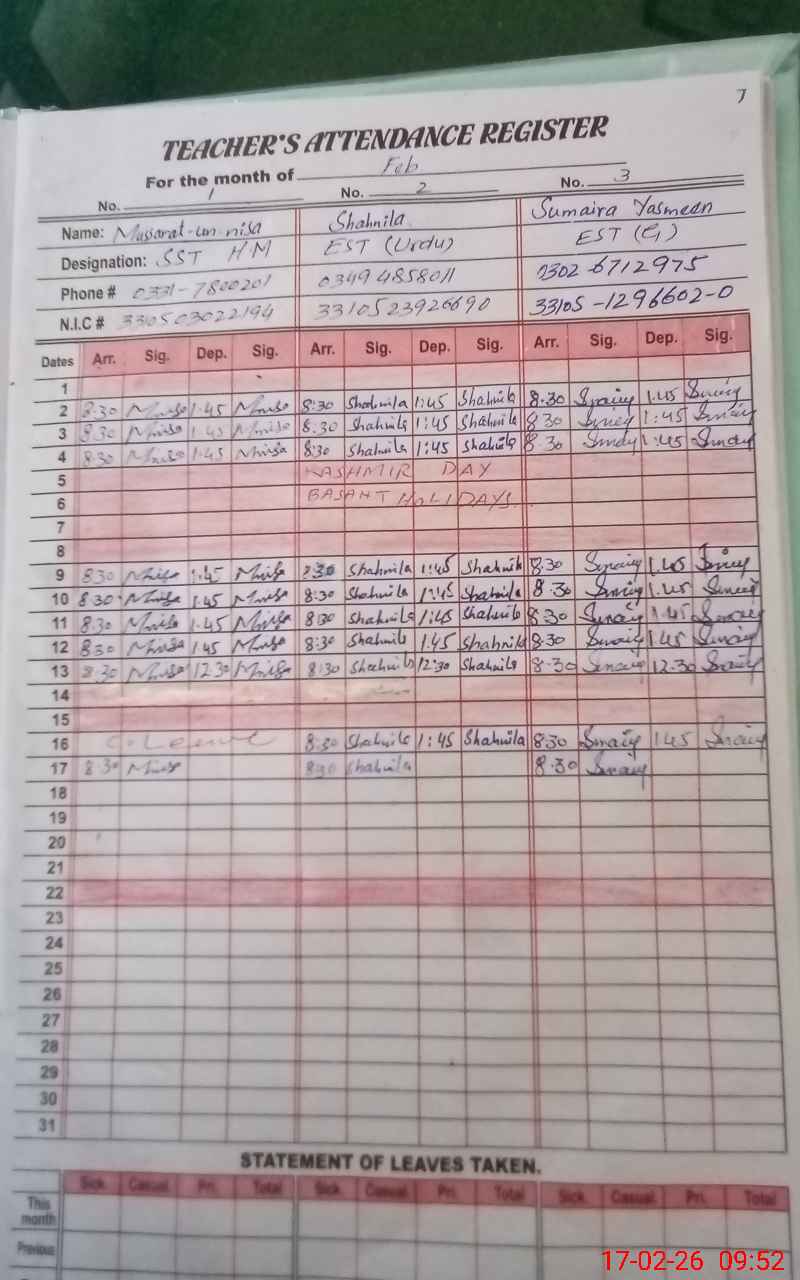 7
TEACHER'S ATTENDANCE REGISTER
For the month of Feb
No. 1 No. 2 No. 3
Name: Musarat-un-nisa Shahnila Sumaira Yasmeen
Designation: SST HM EST (Urdu) EST (G)
Phone # 0331-7800201 03494858011 0302-6712975
N.I.C # 3310503022194 3310523926690 33105-1296602-0
Dates Arr. Sig. Dep. Sig. Arr. Sig. Dep. Sig. Arr. Sig. Dep. Sig.
1
2 8:30 Mnisa 1:45 Mnisa 8:30 Shahnila 1:45 Shahnila 8.30 1.45
3 8:30 Mnisa 1:45 Mnisa 8:30 Shahnila 1:45 Shahnila 8:30 1:45
4 8:30 Mnisa 1:45 Mnisa 8:30 Shahnila 1:45 Shahnila 8.30 1:45
5 KASHMIR DAY
6 BASANT HOLIDAYS
7
8
9 8:30 Mnisa 1:45 Mnisa Shahnila 1:45 Shahnila 8:30 1.45
10 8:30 Mnisa 1.45 Mnisa 8:30 Shahnila 1:45 Shahnila 8.30 1.45
11 8:30 Mnisa 1.45 Mnisa 8:30 Shahnila 1:45 Shahnila 8:30 1.45
12 8:30 Mnisa 1.45 Mnisa 8:30 Shahnila 1:45 Shahnila 8:30 1:45
13 8:30 Mnisa 12:30 Mnisa 8:30 Shahnila 12:30 Shahnila 8-30 12.30
14
15
16 C-Leave 8:30 Shahnila 1:45 Shahnila 8:30 1:45
17 8:30 Mnisa 8:30 Shahnila 8.30
18
19
20
21
22
23
24
25
26
27
28
29
30
31
STATEMENT OF LEAVES TAKEN.
Sick Casual Pri. Total Sick Casual Pri. Total Sick Casual Pri. Total
This month
Previous
17-02-26 09:52